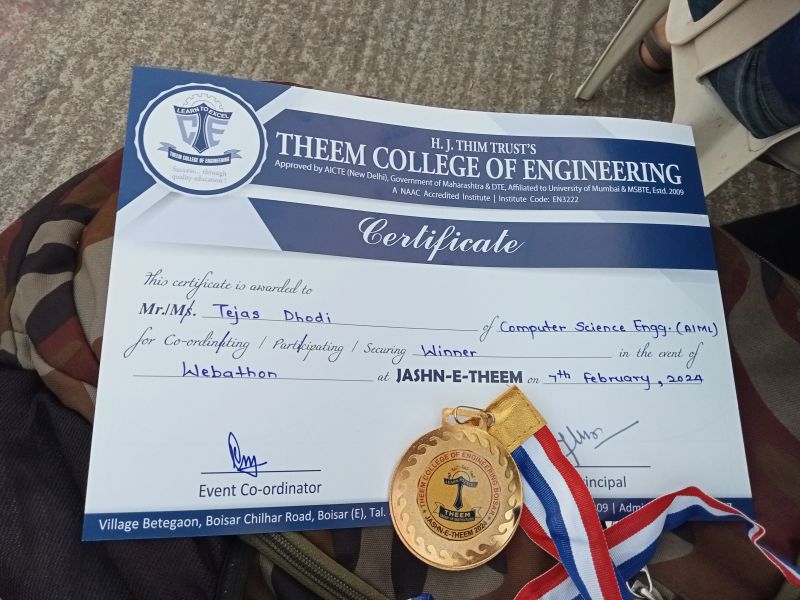 LEARN TO EXCEL
THEEM COLLEGE OF ENGINEERING
Success... through
quality education !
H. J. THIM TRUST'S
THEEM COLLEGE OF ENGINEERING
Approved by AICTE (New Delhi), Government of Maharashtra & DTE, Affiliated to University of Mumbai & MSBTE, Estd. 2009
A NAAC Accredited Institute | Institute Code: EN3222
Certificate
This certificate is awarded to
Mr./Ms. Tejas Dhodi of Computer Science Engg. (AIML)
for Co-ordinating / Participating / Securing Winner in the event of
Webathon at JASHN-E-THEEM on 7th February, 2024
Event Co-ordinator
incipal
Village Betegaon, Boisar Chilhar Road, Boisar (E), Tal.
09 | Admi
THEEM COLLEGE OF ENGINEERING BOISAR
THEEM
JASHN-E-THEEM 2024